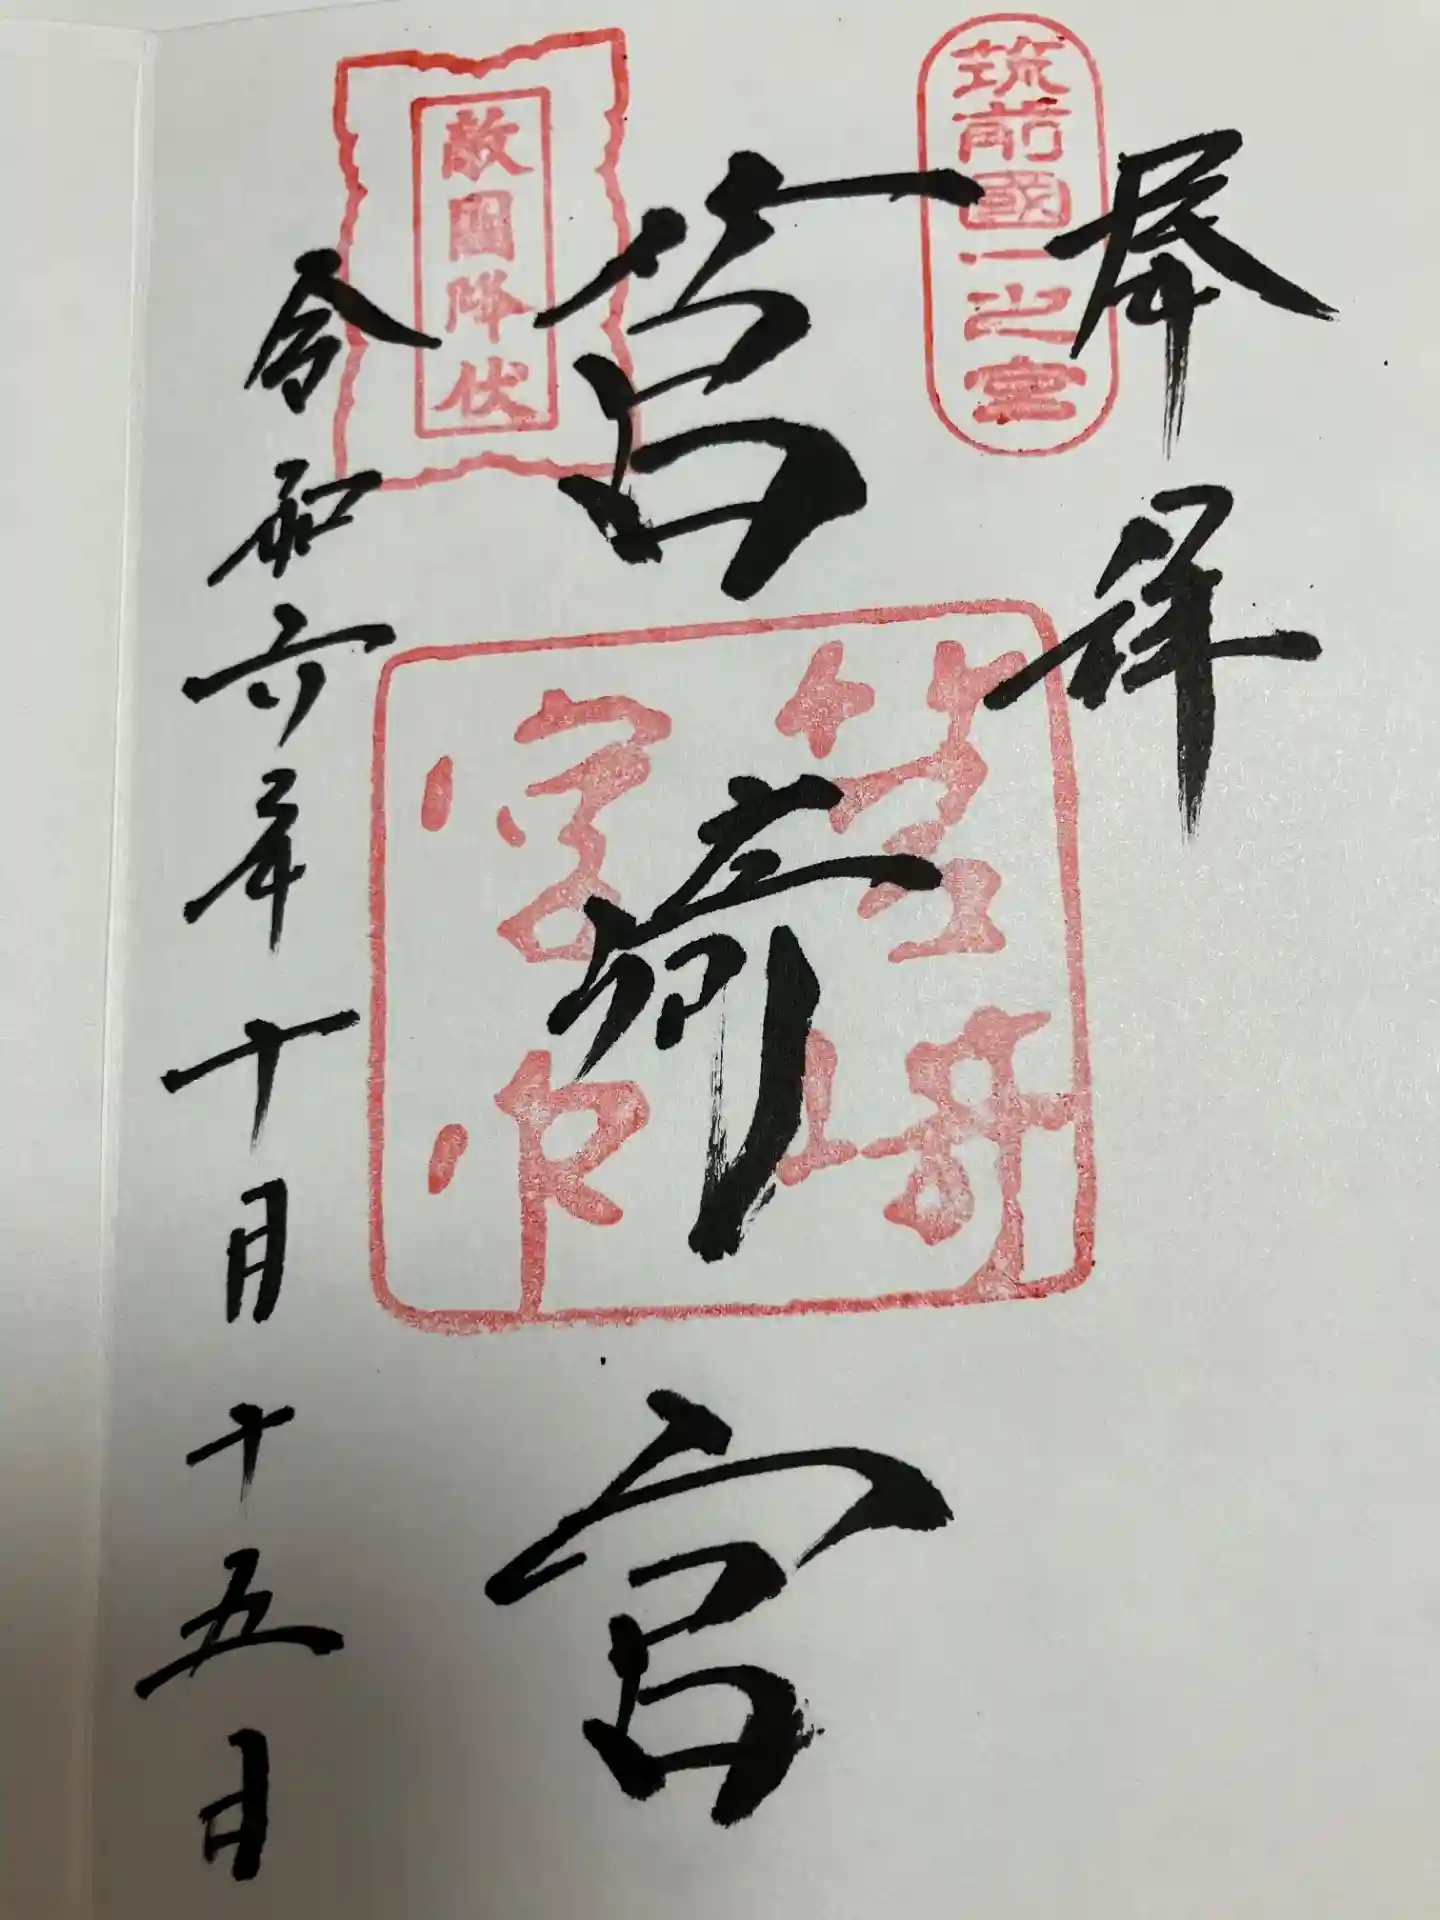 奉拝
筑前國一之宮
筥崎宮
敵國降伏
筥崎
宮印
令和六年十月十五日